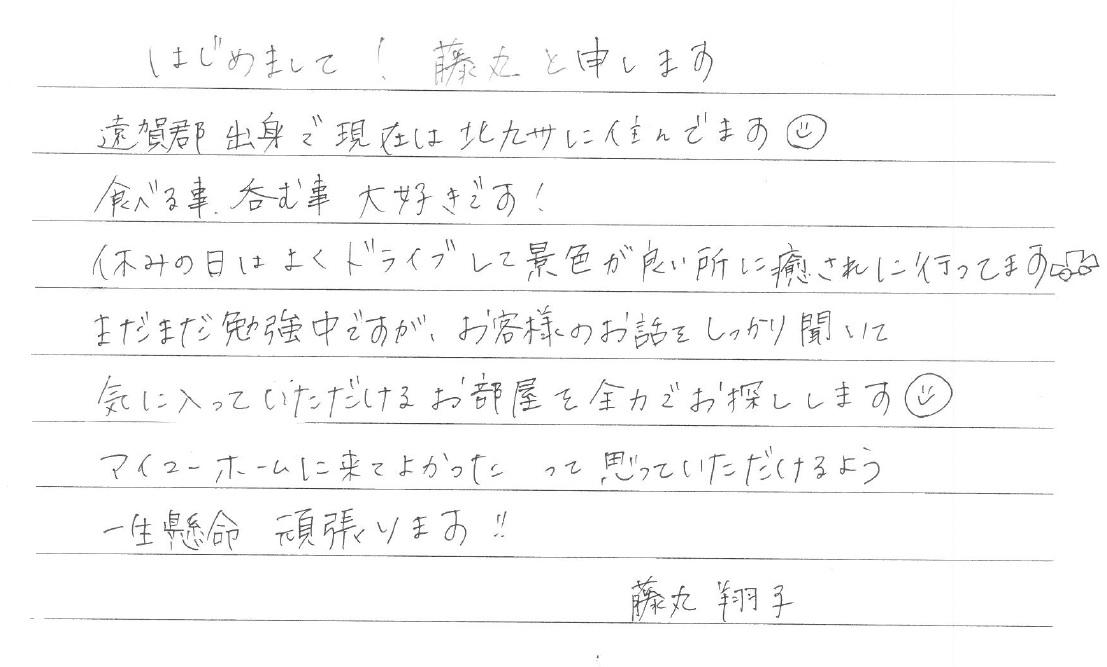 はじめまして! 藤丸と申します
遠賀郡 出身で現在は北九州に住んでます☺
食べる事、呑む事 大好きです!
休みの日はよくドライブして景色が良い所に癒されに行ってます
まだまだ勉強中ですが、お客様のお話をしっかり聞いて
気に入っていただけるお部屋を全力でお探しします☺
マイユーホームに来てよかった って思っていただけるよう
一生懸命 頑張ります!!
藤丸 翔子